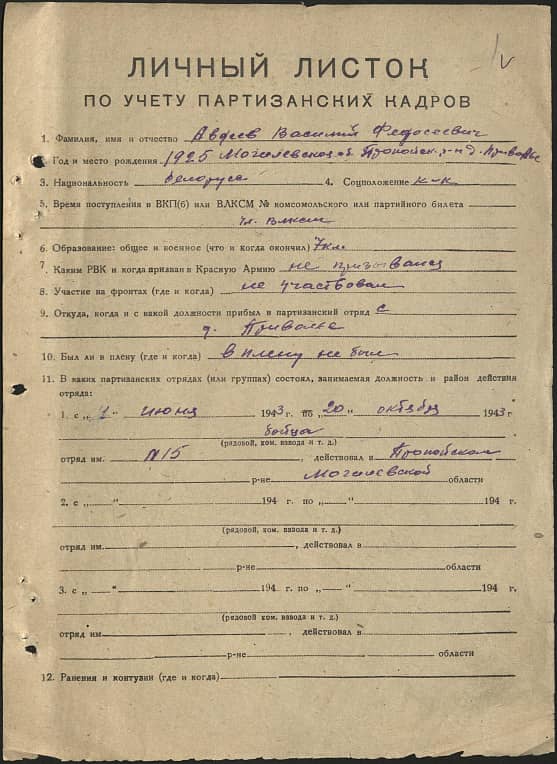 ЛИЧНЫЙ ЛИСТОК
ПО УЧЕТУ ПАРТИЗАНСКИХ КАДРОВ
1. Фамилия, имя и отчество Авдеев Василий Федосеевич
2. Год и место рождения 1925 Могилевской об. Пропойск. р-н д. Приволье
3. Национальность белорусс 4. Соцположение к-к
5. Время поступления в ВКП(б) или ВЛКСМ № комсомольского или партийного билета
Чл. ВЛКСМ
6. Образование: общее и военное (что и когда окончил) 7 кл.
7. Каким РВК и когда призван в Красную Армию не призывался
8. Участие на фронтах (где и когда) не участвовал
9. Откуда, когда и с какой должности прибыл в партизанский отряд с
д. Приволье
10. Был ли в плену (где и когда) в плену не был
11. В каких партизанских отрядах (или группах) состоял, занимаемая должность и район действия
отряда:
1. с „1" июня 1943 г. по „20" октября 1943 г
бойца
(рядовой, ком. взвода и т. д.)
отряд им. №15, действовал в Пропойском
р-не Могилевской области
2. с „ — " 194 г. по „ — " 194 г.
(рядовой, ком. взвода и т. д.)
отряд им. , действовал в
р-не области
3. с „ — " 194 г. по „ — " 194 г.
(рядовой, ком. взвода и т. д.)
отряд им. , действовал в
р-не области
12. Ранения и контузии (где и когда)